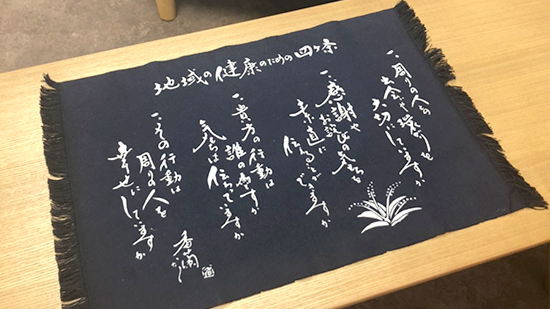 地域の健康のための四ヶ条
一、周りの人の
出会いや繋がりを
大切にしていますか
一、感謝や
お詫びの気もちを
素直に伝えることができますか
一、貴方の行動は
誰の為ですか
気もちは伝わっていますか
一、その行動は
周りの人を
幸せにしていますか
香蘭